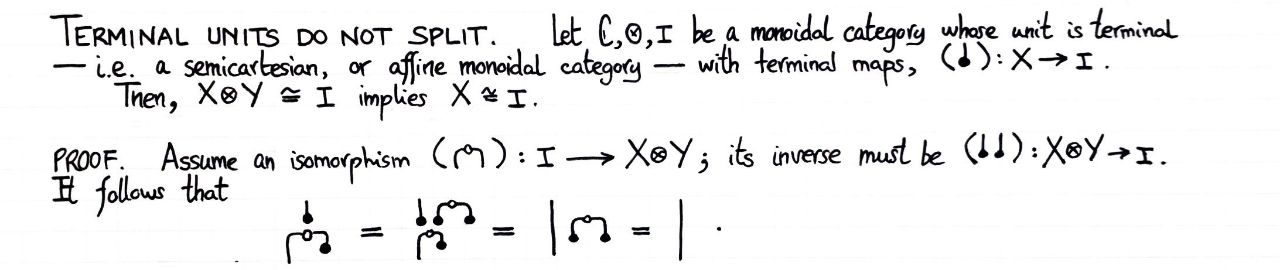 TERMINAL UNITS DO NOT SPLIT. Let ℂ,⊗,I be a monoidal category whose unit is terminal
— i.e. a semicartesian, or affine monoidal category — with terminal maps, ( ): X → I.
Then, X⊗Y ≅ I implies X ≅ I.
PROOF. Assume an isomorphism ( ): I → X⊗Y; its inverse must be ( ): X⊗Y → I.
It follows that
= = | = | .